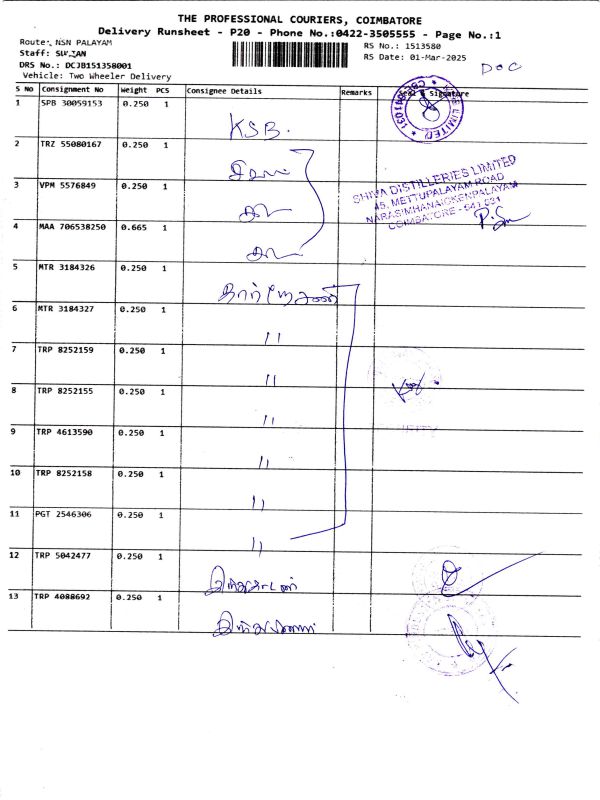 THE PROFESSIONAL COURIERS, COIMBATORE
Delivery Runsheet - P20 - Phone No.:0422-3505555 - Page No.:1
Route: NSN PALAYAM
RS No.: 1513580
Staff:
RS Date: 01-Mar-2025
DRS No.: DCJB151358001
DOC
Vehicle: Two Wheeler Delivery
S No Consignment No Weight PCS Consignee Details Remarks Seal & Signature
1 SPB 30059153 0.250 1 KSB.
2 TRZ 55080167 0.250 1
SHIVA DISTILLERIES LIMITED
45, METTUPALAYAM ROAD
NARASIMHANAICKENPALAYAM
COIMBATORE - 641 031
3 VPM 5576849 0.250 1
4 MAA 706538250 0.665 1
5 MTR 3184326 0.250 1
6 MTR 3184327 0.250 1 11
7 TRP 8252159 0.250 1 11
8 TRP 8252155 0.250 1 11
9 TRP 4613590 0.250 1 11
10 TRP 8252158 0.250 1 11
11 PGT 2546306 0.250 1 11
12 TRP 5042477 0.250 1
13 TRP 4088692 0.250 1